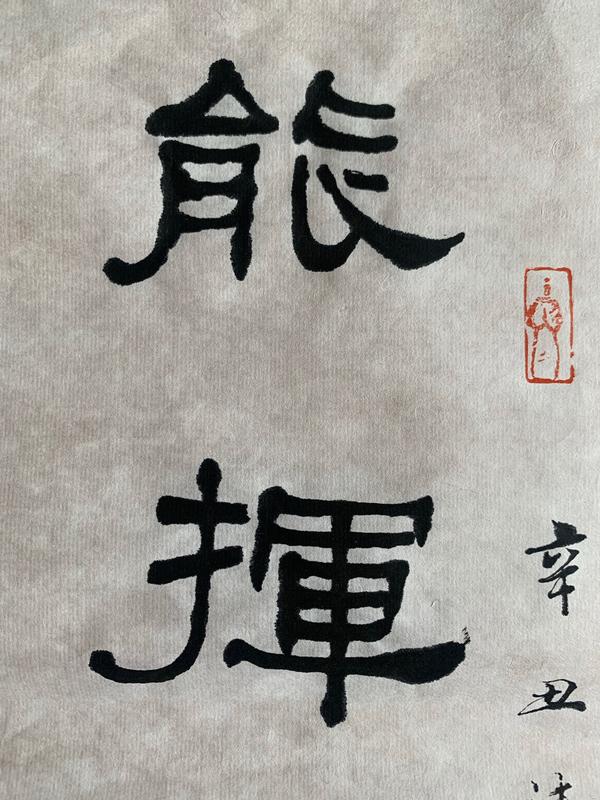 能揮
辛丑